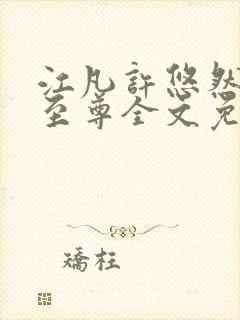 江凡許悠然
至尊全文免
矯枉